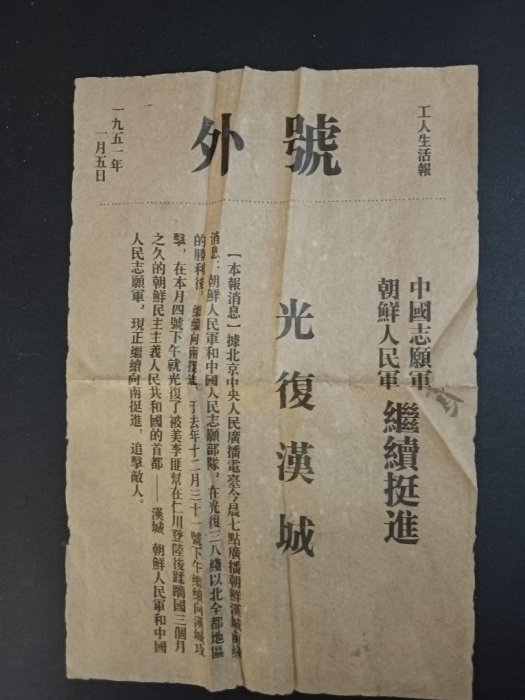 工人生活報
號外
一九五一年
一月五日
中國志願軍
朝鮮人民軍
繼續挺進
光復漢城
【本報消息】據北京中央人民廣播電臺今晨七點廣播朝鮮漢城前綫
消息：朝鮮人民軍和中國人民志願部隊，在光復三八綫以北全部地區
的勝利後，繼續向南挺進，于去年十二月三十一號下午繼續向漢城攻
擊，在本月四號下午就光復了被美李匪幫在仁川登陸後蹂躪國三個月
之久的朝鮮民主主義人民共和國的首都——漢城 朝鮮人民軍和中國
人民志願軍，現正繼續向南挺進，追擊敵人。